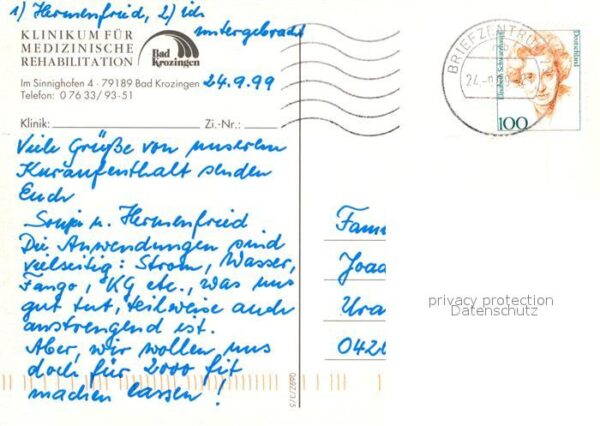 1) Hermenfried, 2) ich
untergebracht
KLINIKUM FÜR
MEDIZINISCHE
REHABILITATION
Bad
Krozingen
Im Sinnighofen 4 · 79189 Bad Krozingen
Telefon: 0 76 33/ 93-51
24.9.99
Klinik: Zi.-Nr.:
Viele Grüße von unserem
Kuraufenthalt senden
Euch
Sonja u. Hermenfried
Die Anwendungen sind
vielseitig: Strom, Wasser,
Fango, KG etc., was uns
gut tut, teilweise auch
anstrengend ist.
Aber, wir wollen uns
doch für 2000 fit
machen lassen!
BRIEFZENTRUM
24.
Deutschland
Elisabeth Schwarzhaupt
100
Fam
Joac
Ura
042
privacy protection
Datenschutz